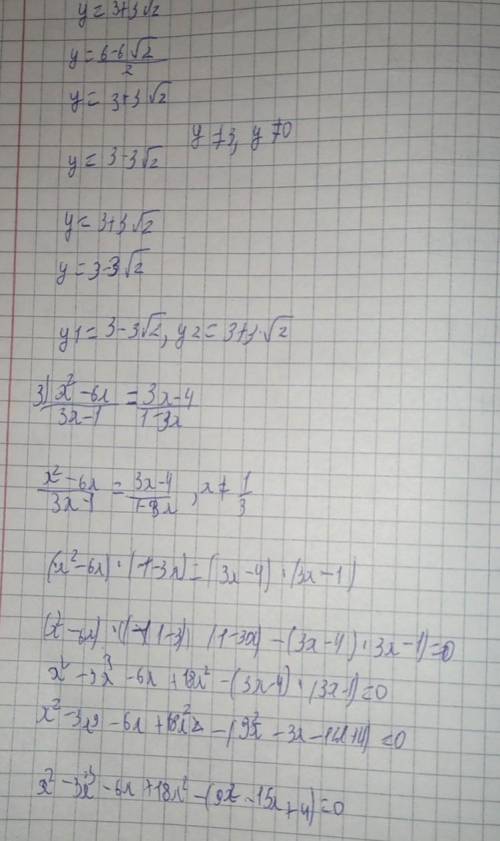 y = 3+3√2
y = (6-6√2)/2
y = 3+3√2
y ≠ 3, y ≠ 0
y = 3-3√2
y = 3+3√2
y = 3-3√2
y1 = 3-3√2, y2 = 3+3√2
3) (x²-6x)/(3x-1) = (3x-4)/(1-3x)
(x²-6x)/(3x-1) = (3x-4)/(1-3x), x ≠ 1/3
(x²-6x)·(1-3x) = (3x-4)·(3x-1)
(1-3x) - (3x-4)·3x-1)=0
x²-3x³-6x+18x²-(3x-4)·(3x-1)=0
x²-3x³-6x+18x²-(9x²-3x-12x+4)=0
x²-3x³-6x+18x²-(9x²-15x+4)=0